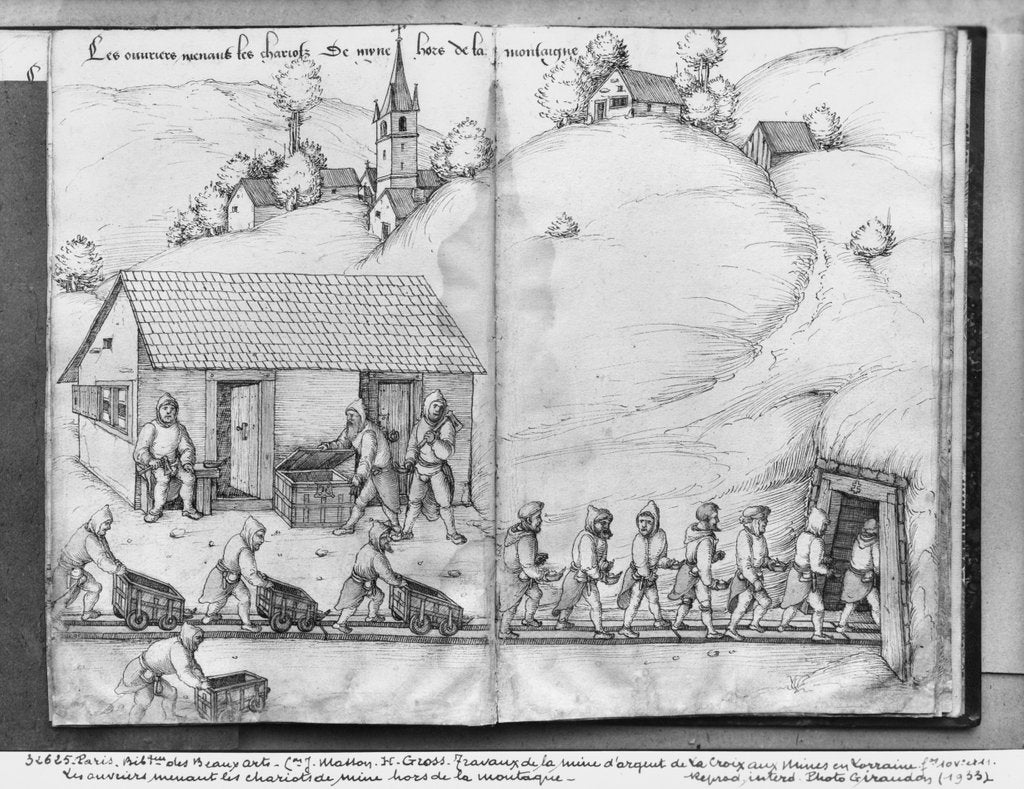 Les ouuriers menant les chariotz De myne hors de la montaigne
32625. Paris. Bibl. des Beaux arts - J. Masson. H. Gross. Travaux de la mine d'argent de La Croix aux Mines en Lorraine
Les ouvriers menant les chariots de mine hors de la montagne - Reprod. interd. Photo Giraudon (1933)